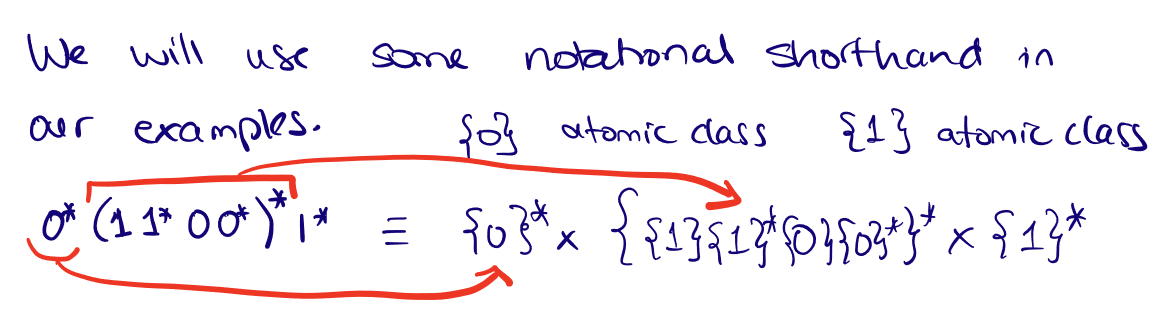 We will use some notational shorthand in
our examples. {0} atomic class {1} atomic class
0*(11*00*)*1* ≡ {0}* x {{1}{1}*{0}{0}*}* x {1}*